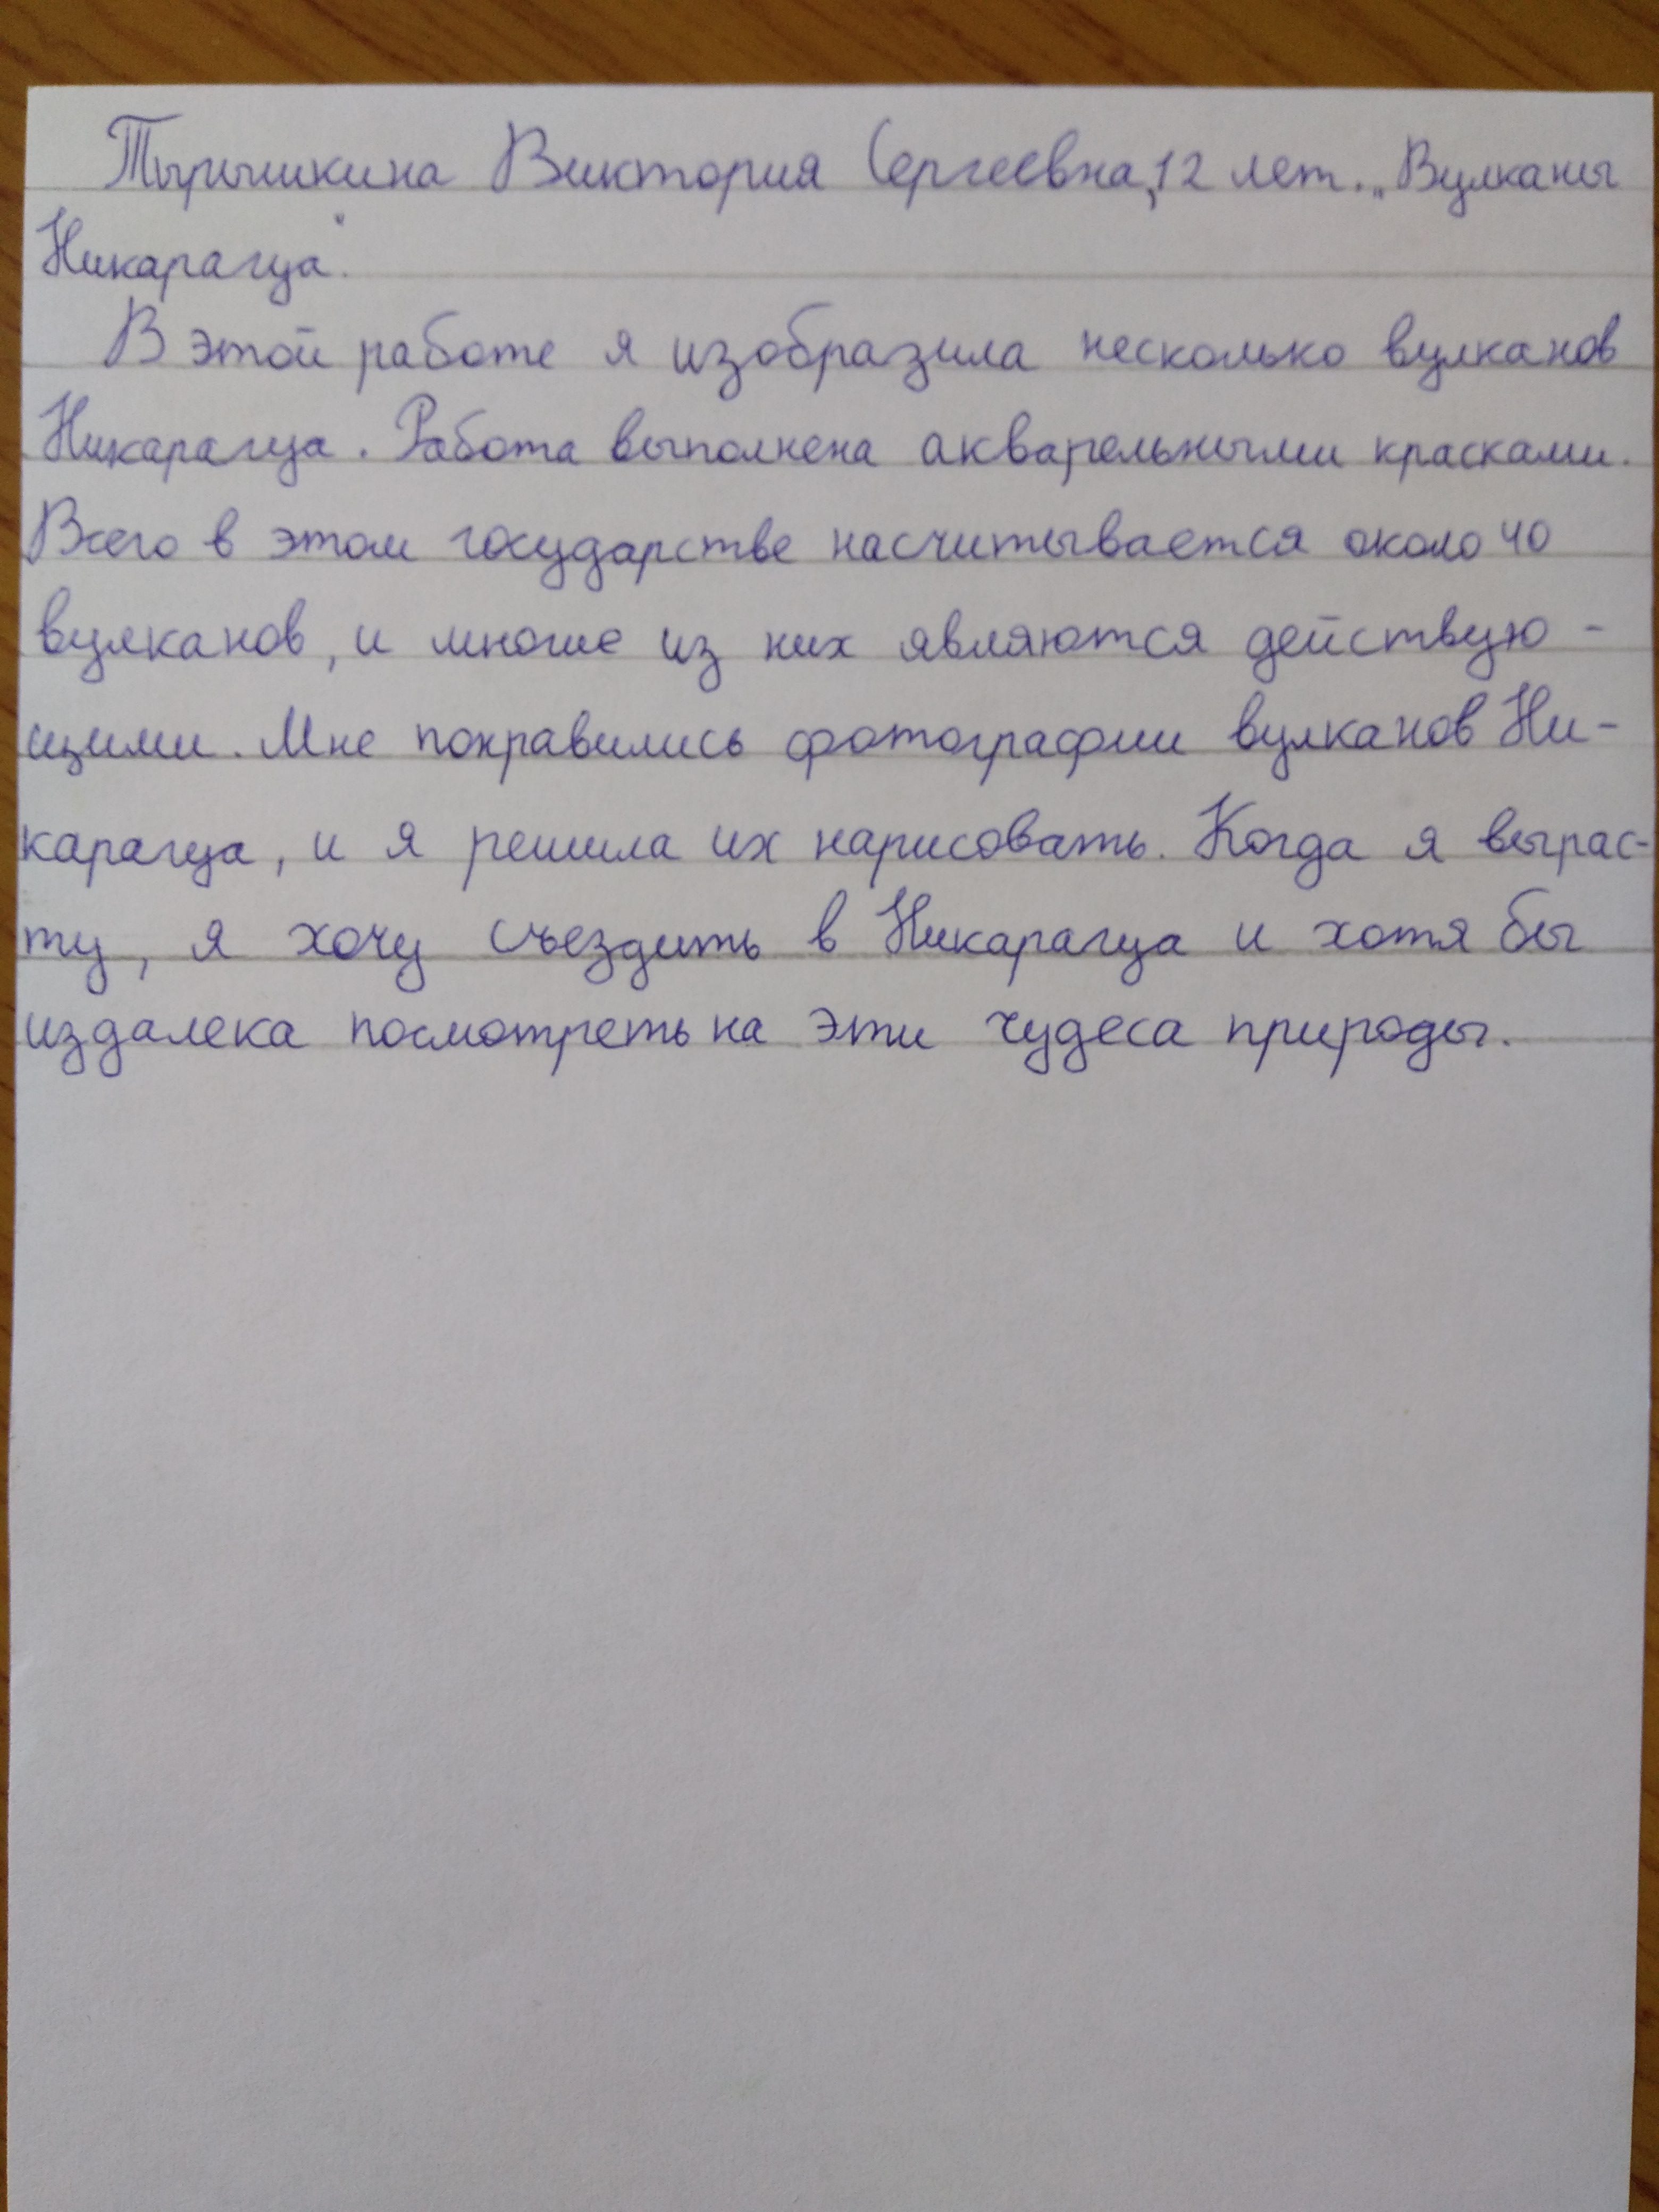 Тырышкина Виктория Сергеевна, 12 лет. „Вулканы
Никарагуа“.
В этой работе я изобразила несколько вулканов
Никарагуа. Работа выполнена акварельными красками.
Всего в этом государстве насчитывается около 40
вулканов, и многие из них являются действую-
щими. Мне понравились фотографии вулканов Ни-
карагуа, и я решила их нарисовать. Когда я вырас-
ту, я хочу съездить в Никарагуа и хотя бы
издалека посмотреть на эти чудеса природы.